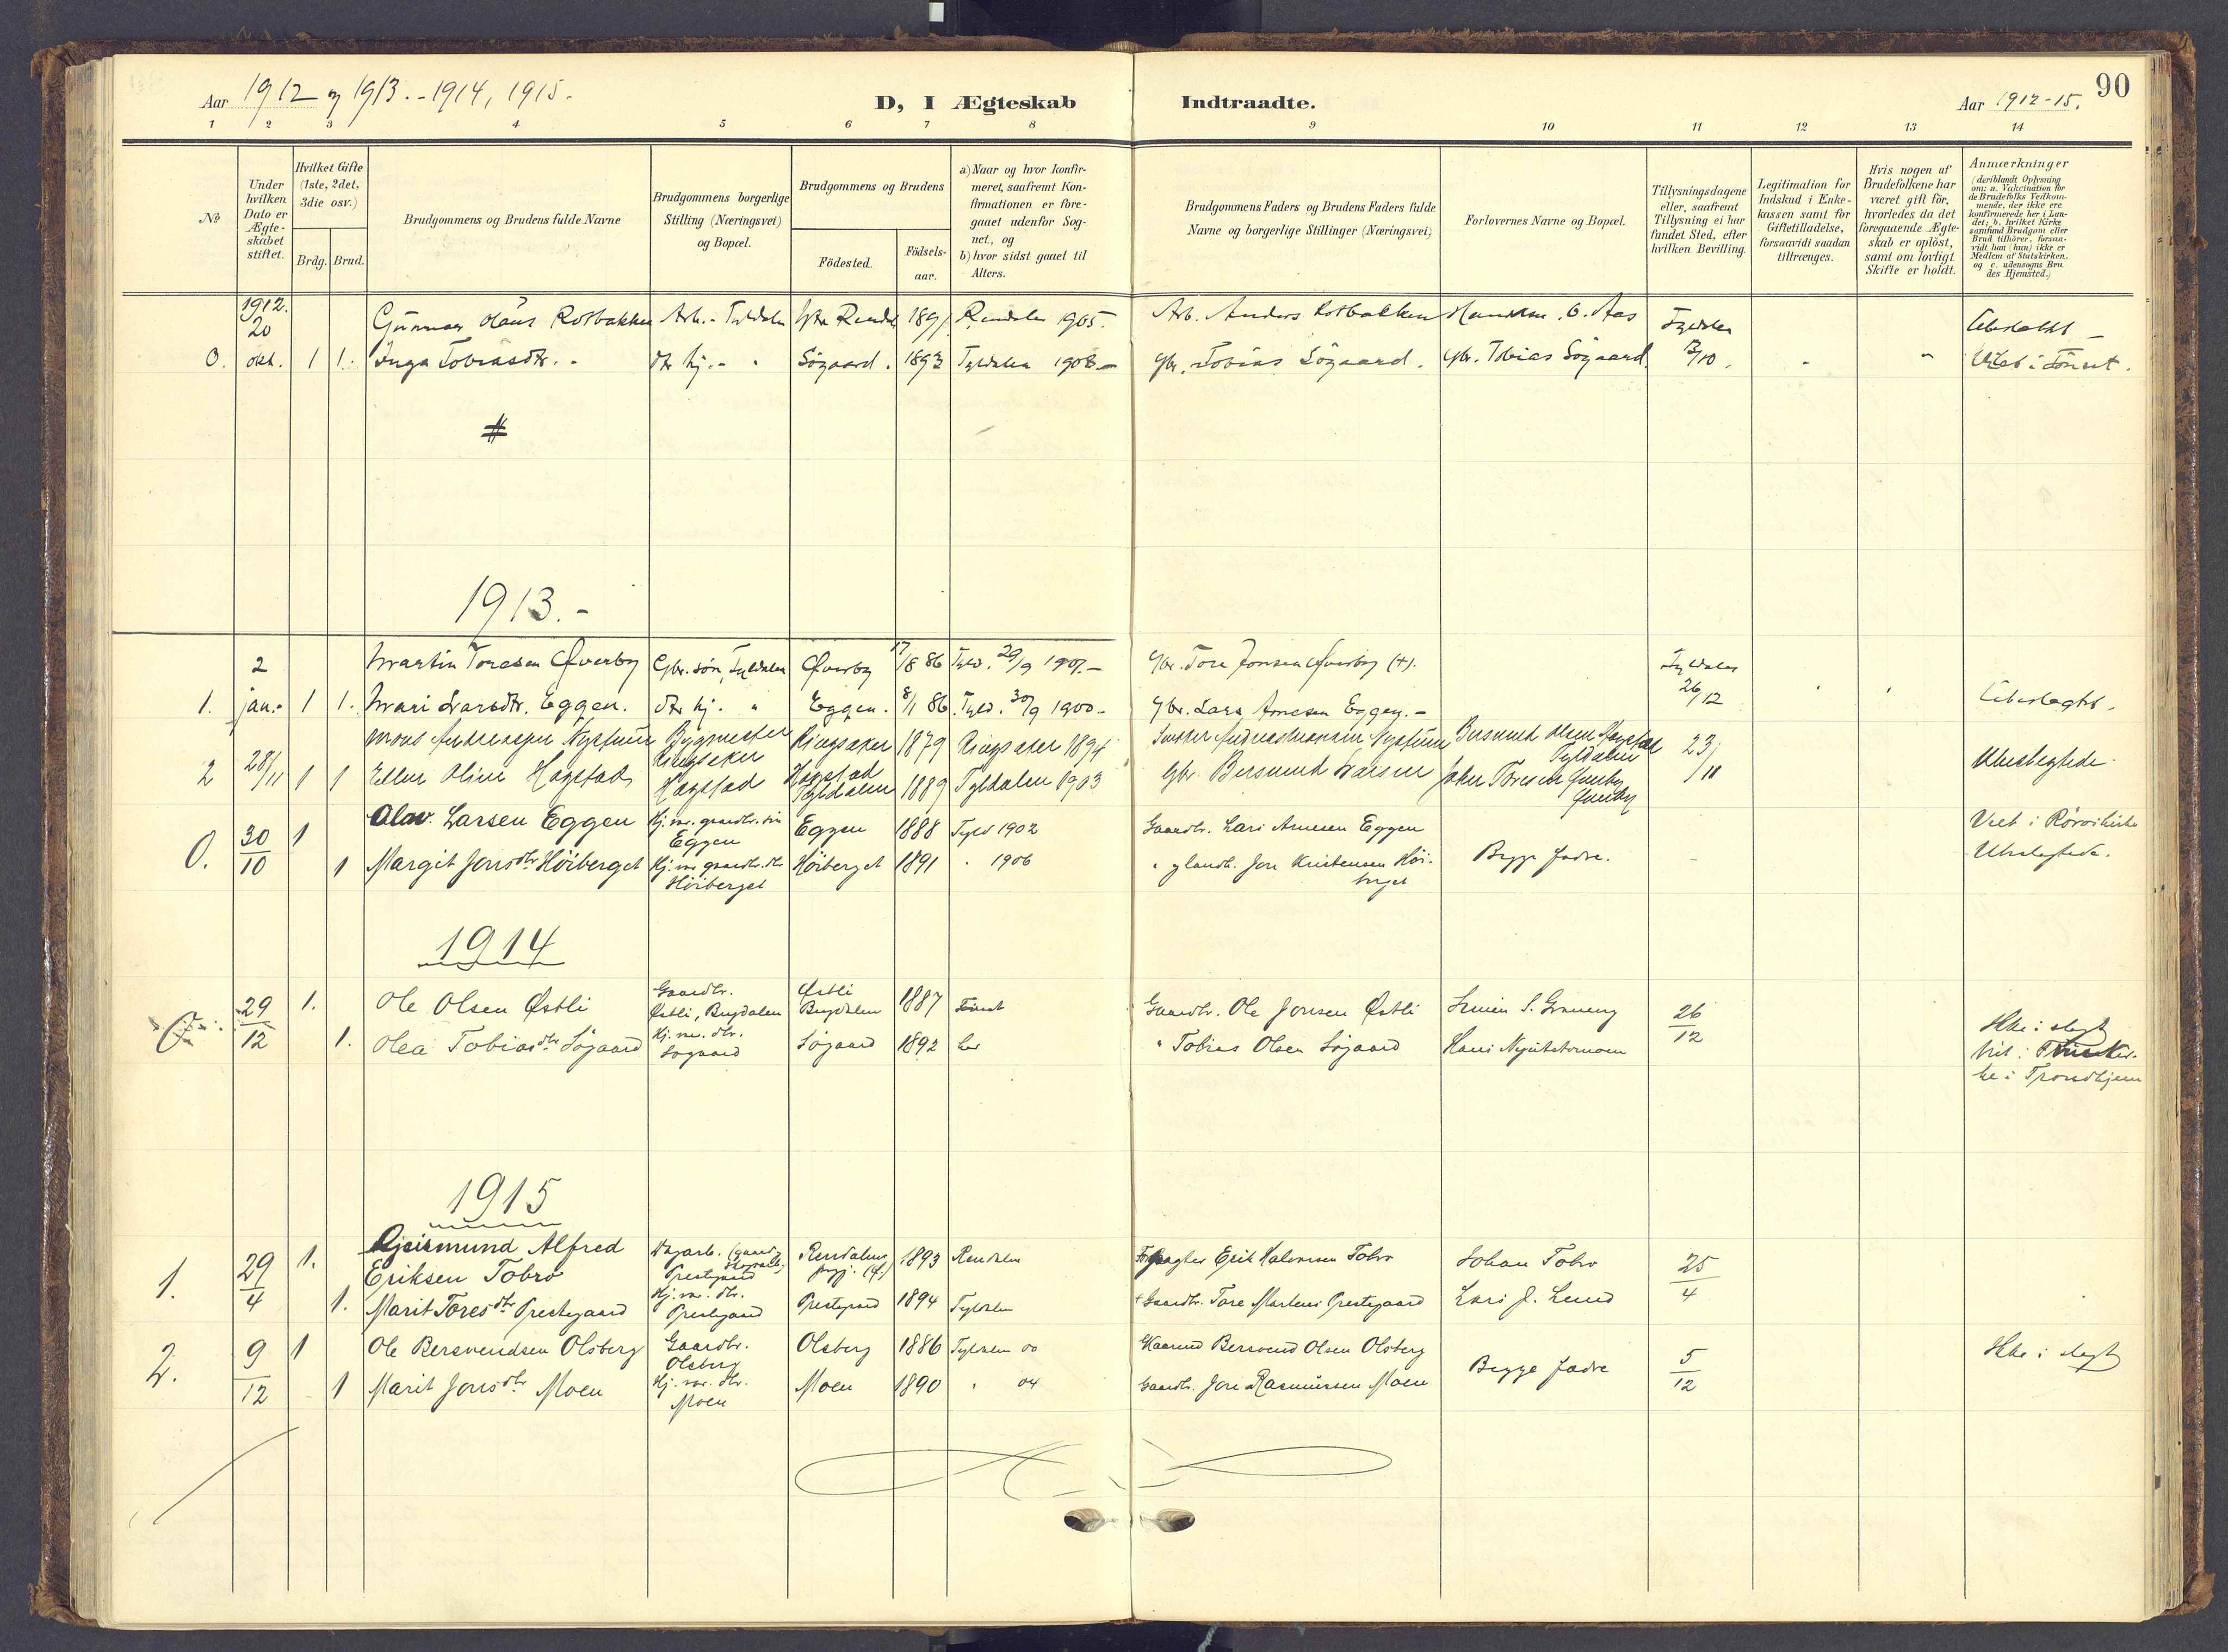 Aar 1912 og 1913. - 1914, 1915.
D, I Ægteskab Indtraadte.
Aar 1912-15.
90
1 2 3 4 5 6 7 8 9 10 11 12 13 14
No
Under hvilken Dato er Ægte-skabet stiftet.
Hvilket Gifte (1ste, 2det, 3die osv.)
Brdg. Brud.
Brudgommens og Brudens fulde Navne
Brudgommens borgerlige Stilling (Næringsvei) og Bopæl.
Brudgommens og Brudens
Födested.
Födsels-aar.
a) Naar og hvor konfir-meret, saafremt Kon-firmationen er fore-gaaet udenfor Sog-net, og
b) hvor sidst gaaet til Alters.
Brudgommens Faders og Brudens Faders fulde Navne og borgerlige Stillinger (Næringsvei)
Forlovernes Navne og Bopæl.
Tillysningsdagene eller, saafremt Tillysning ei har fundet Sted, efter hvilken Bevilling.
Legitimation for Indskud i Enke-kassen samt for Giftetilladelse, forsaavidt saadan tiltrænges.
Hvis nogen af Brudefolkene har været gift för, hvorledes da det foregaaende Ægte-skab er oplöst, samt om lovligt Skifte er holdt.
Anmærkninger (deriblandt Oplysning om: a. Vakcination for de Brudefolks Vedkom-mende, der ikke ere konfirmerede her i Lan-det; b. hvilket Kirke samfund Brudgom eller Brud tilhörer, forsaa-vidt han (hun) ikke er Medlem af Statskirken. og c. udensogns Bru des Hjemsted.)
1912.
20 Gunnar Olaus Rotbakken Arb. - Tyldalen 1891 Rendalen 1905. Arb. Anders Rotbakken O. Aas Tyldalen
0. okt. 1 1. Inga Tobiasdtr. - Søgaard. 1893 Tyldalen 1908. Gbr. Tobias Søgaard. Gbr. Tobias Søgaard. /10. Viet i Tönset.
1913. -
2 Martin Toresen Øverby Gbr. søn, Tyldalen Øverby 17/8 86 Tyld. 29/9 1901. - Gbr. Tore Jonsen Øverby (+). Tyldalen
1. jan. 1 1. Mari Larsdtr. Eggen. Eggen. 8/1 86. Tyld. 30/9 1900 - Gbr. Lars Arnesen Eggen. - 26/12
Mons Andreassen Nystuen Bygmester Ringsaker Ringsaker 1879 Ringsaker 1894 Nystuen Bersvend Olsen Hagstad Tyldalen 23/11
2 28/11 1 1 Eline Hagstad Hagstad Hagstad Tyldalen 1889 Tyldalen 1903 Gbr. Bersvend Larsen Toresen Øverby Øverby Ubeslegtede.
Olav Larsen Eggen Hj. v. gaardbr. søn Eggen Eggen 1888 Tyld 1902 Gaardbr. Lars Arnesen Eggen Viet i Röros kirke
0. 30/10 1 1 Margit Jonsdtr Höiberget Hj. v. gaardbr. dtr Höiberget Höiberget 1891 " 1906 Jon Kristensen Höi-berget Begge fadre. - Ubeslegtede.
1914
29/12 1. Ole Olsen Østli Gaardbr. Østli, Brydalen Østli Brydalen 1887 Tönset Gaardbr. Ole Jonsen Østli 26/12
0. 1. Olea Tobiasdtr Søgaard Hj. v. dtr. Søgaard Søgaard 1892 her " Tobias Olsen Søgaard Ikke i slegt
Viet i
ke i Trondhjem
1915
1. 29/4 1. Alfred Eriksen Tobro Prestgaard Rendalens 1893 Rendalen Erik Halvorsen Tobro Johan Tobro 25/4
1. Marit Toresdtr Prestgaard Hj. v. dtr. Prestgaard Prestgaard 1894 Tyldalen + Gaardbr. Tore Martens Prestgaard Lars J. Lund
2. 9/12 1 Ole Bersvendsen Olsberg Gaardbr. Olsberg Olsberg 1886 Tyldalen 00 Bersvend Olsen Olsberg Begge fadre 5/12 Ikke i slegt
1 Marit Jonsdtr Moen Hj. v. dtr. Moen Moen 1890 " 04 Gaardbr. Jon Rasmussen Moen